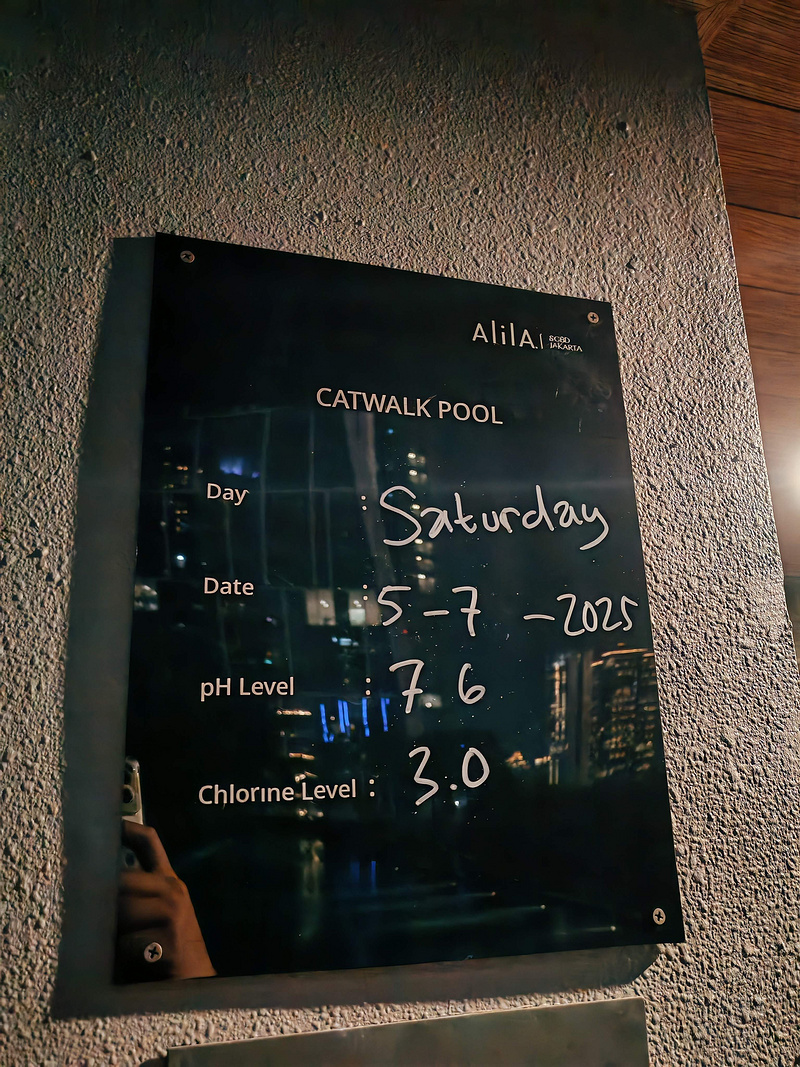 Alila | SCBD
JAKARTA
CATWALK POOL
Day : Saturday
Date : 5-7 -2025
pH Level : 7 6
Chlorine Level : 3.0